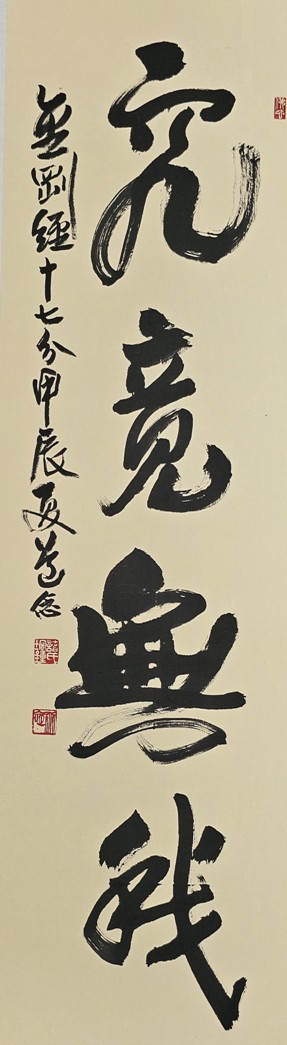 究竟無我
金剛經十七分甲辰夏道念